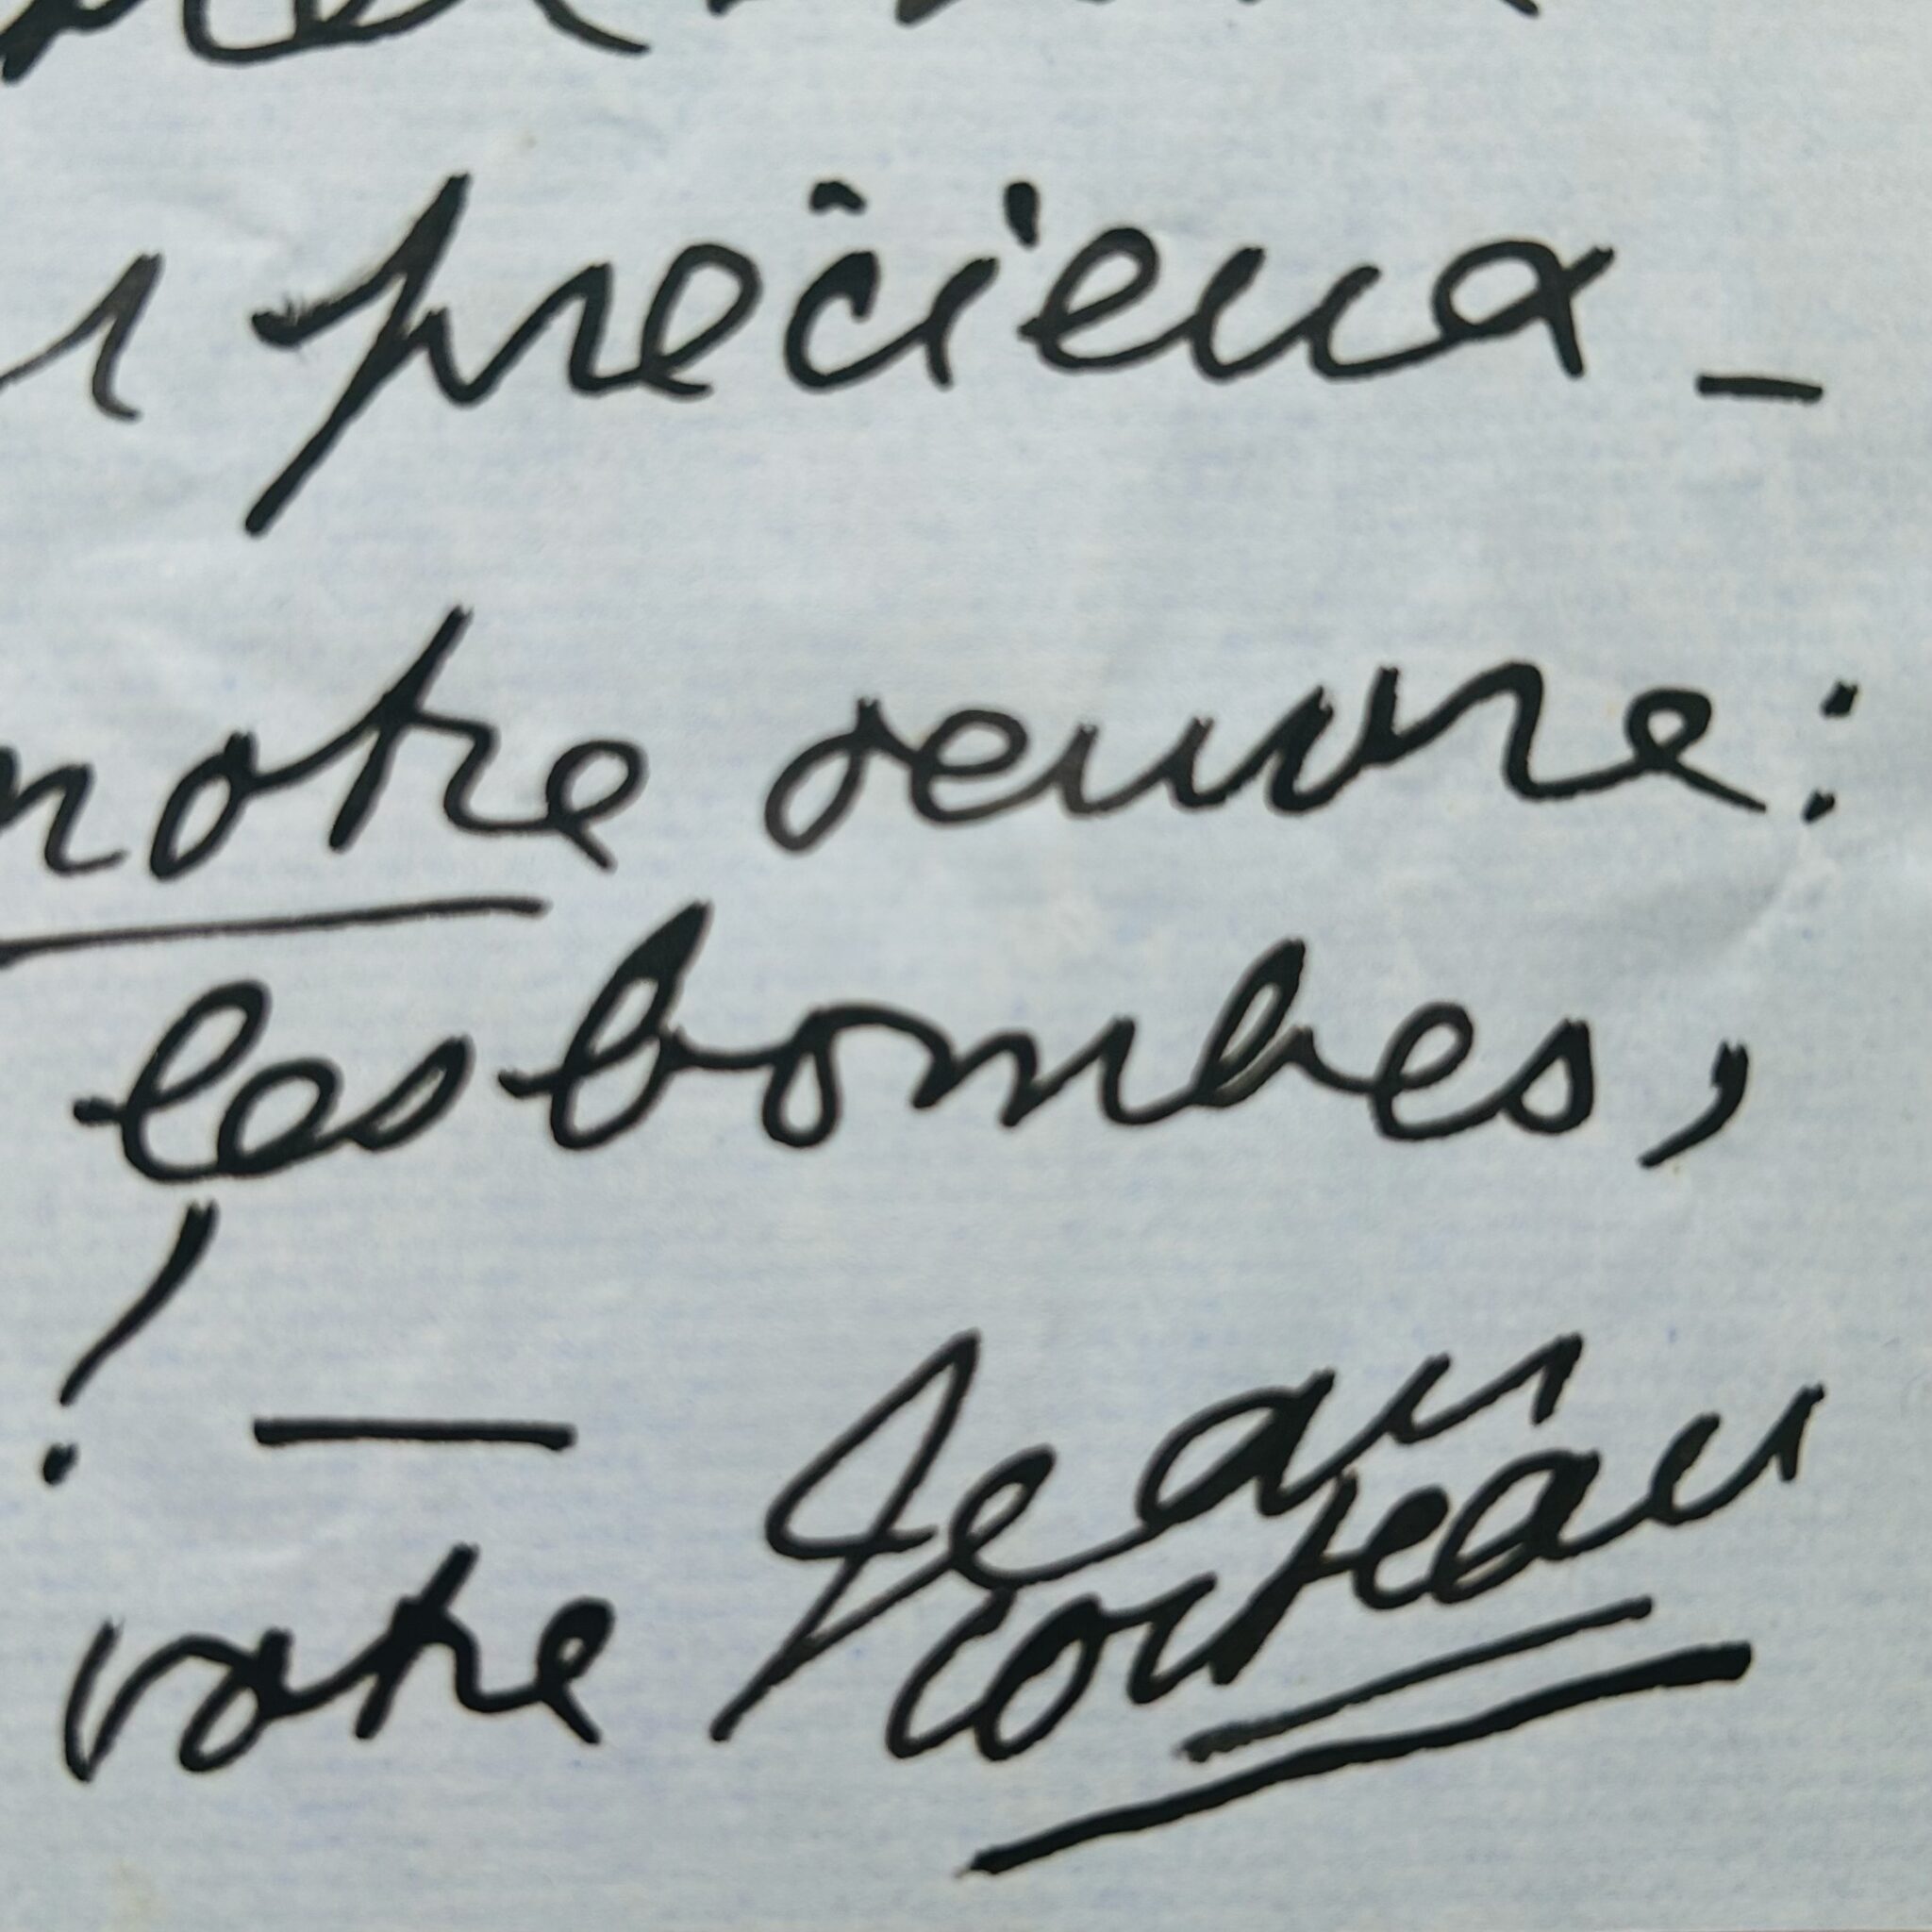 précieux -
notre oeuvre :
les bombes,
! —
votre Jean
cocteau